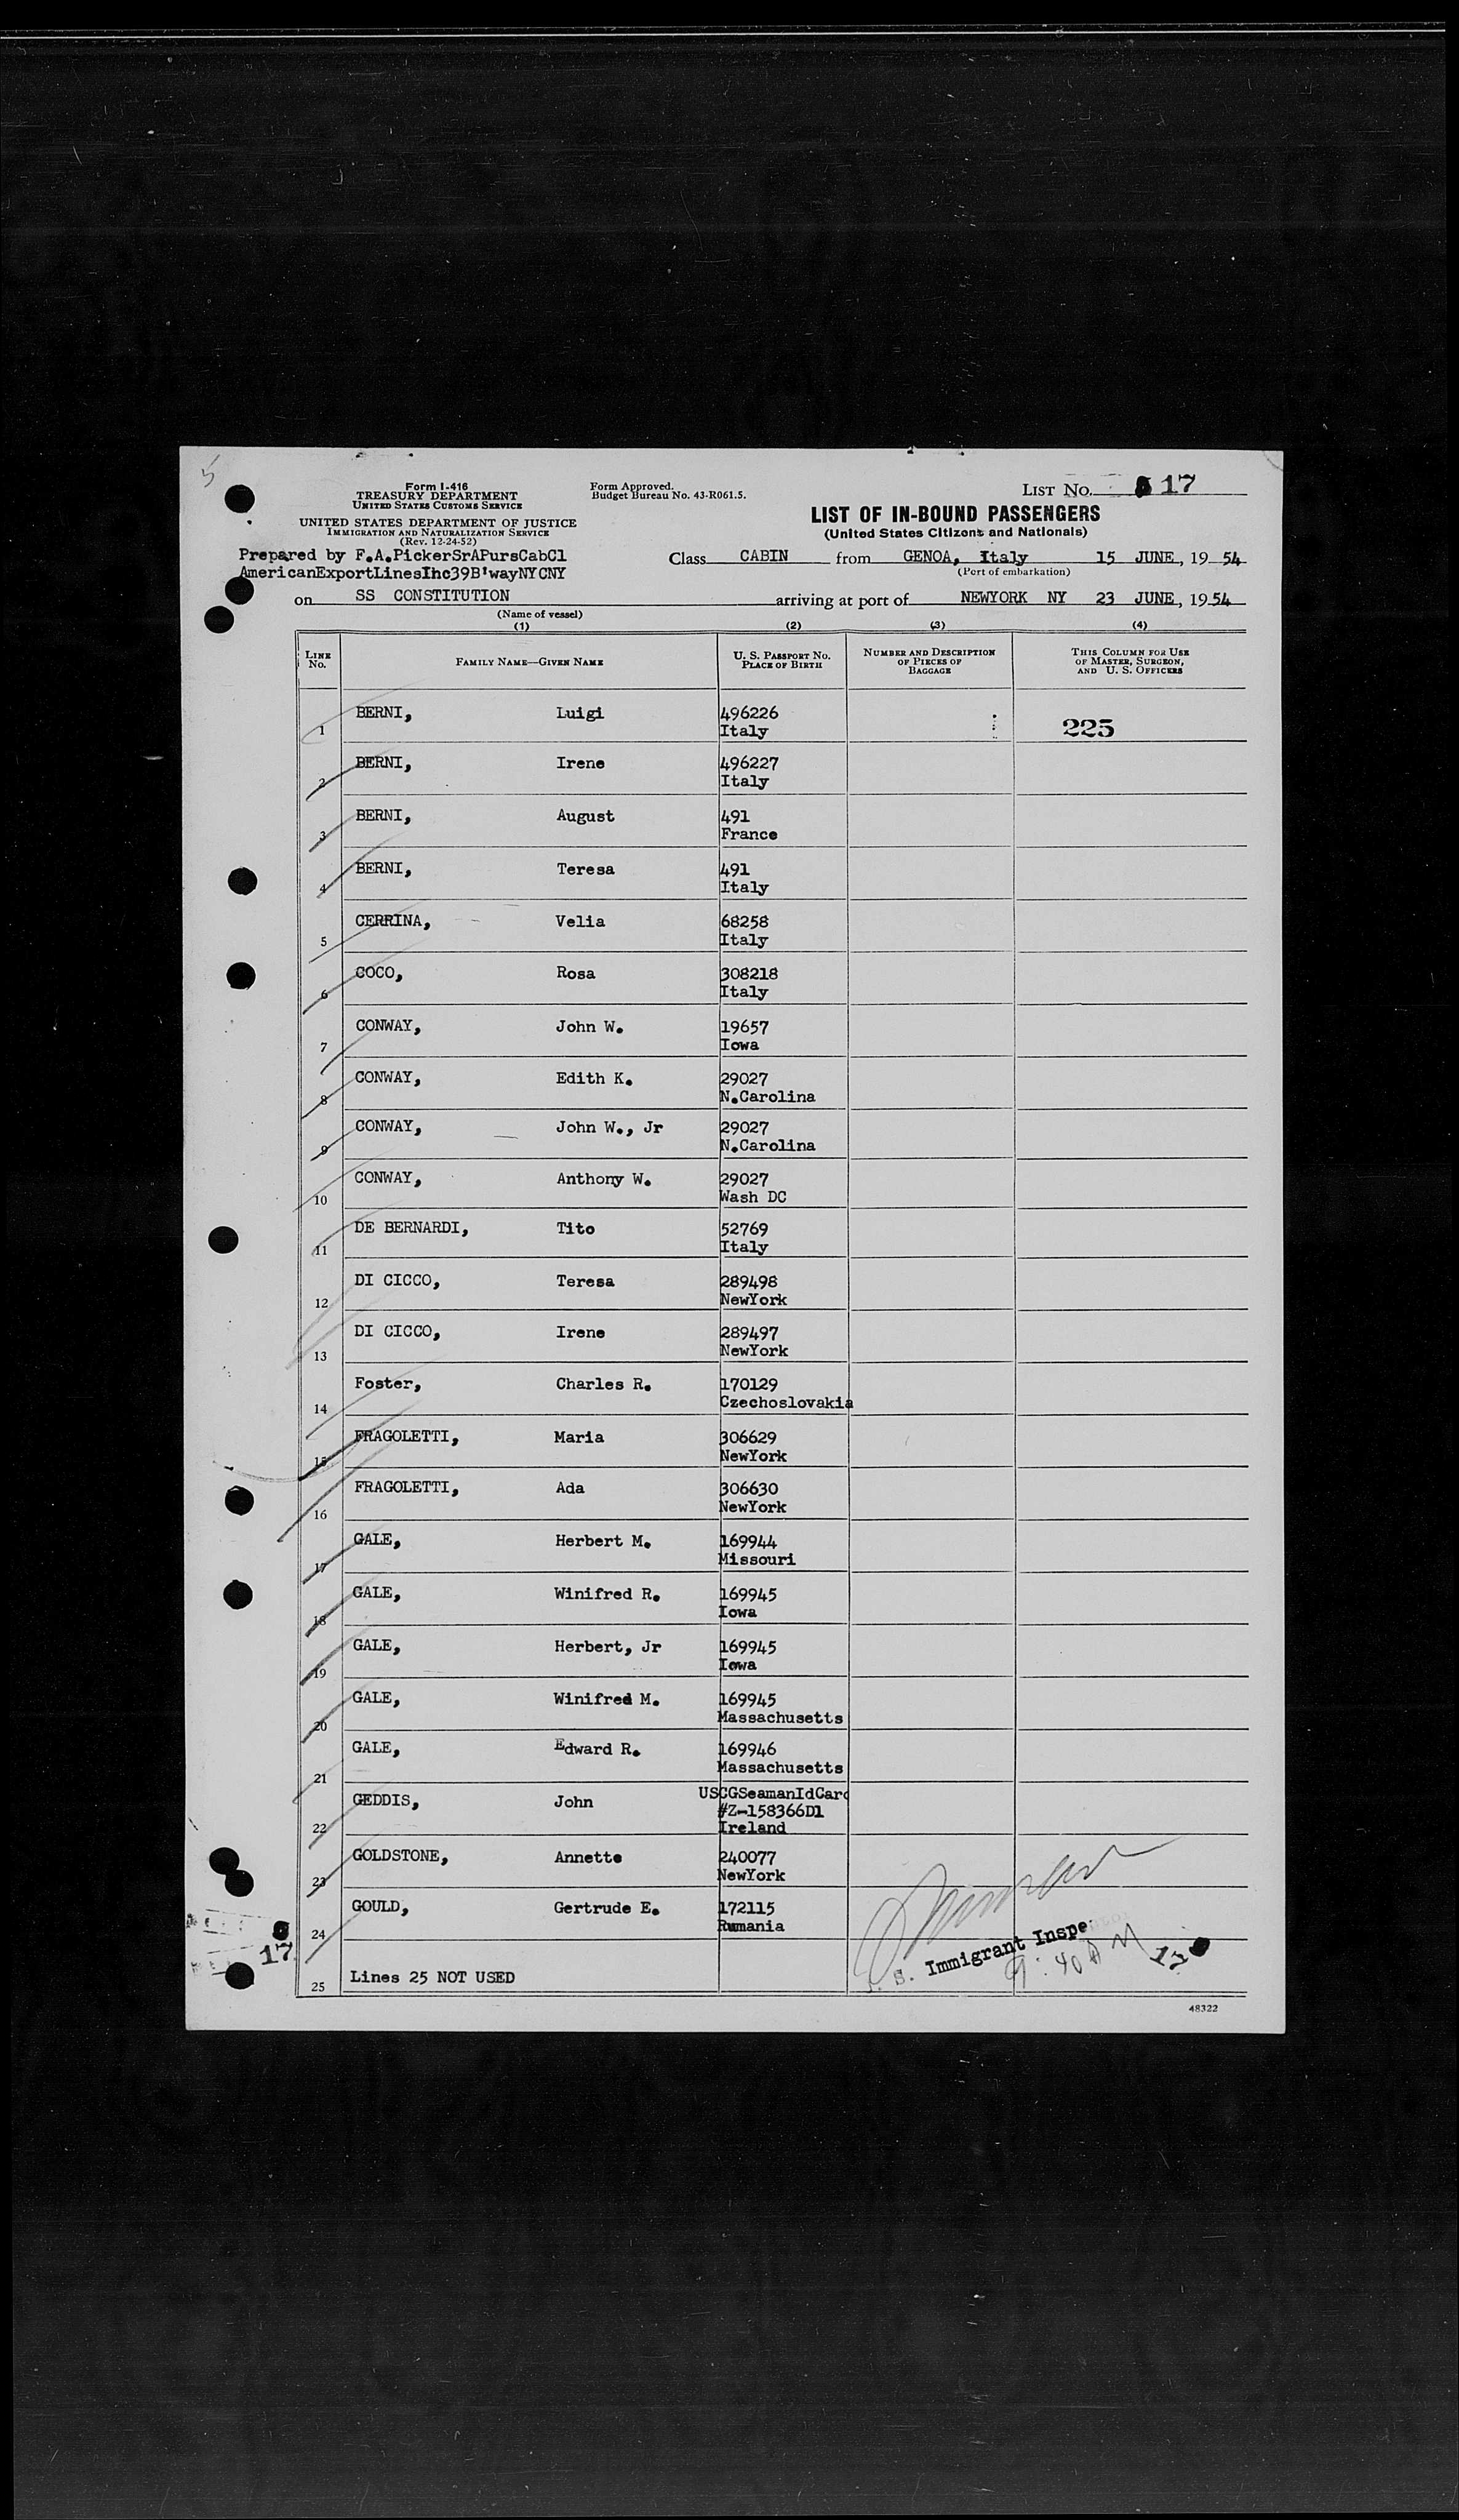 5
Form I-416
TREASURY DEPARTMENT
UNITED STATES CUSTOMS SERVICE
UNITED STATES DEPARTMENT OF JUSTICE
IMMIGRATION AND NATURALIZATION SERVICE
(Rev. 12-24-52)
Form Approved.
Budget Bureau No. 43-R061.5.
LIST No. 17
LIST OF IN-BOUND PASSENGERS
(United States Citizens and Nationals)
Prepared by F.A.PickerSrAPursCabCl
AmericanExportLinesIhc39B'wayNYCNY
Class CABIN from GENOA, Italy 15 JUNE, 19 54
(Port of embarkation)
on SS CONSTITUTION arriving at port of NEWYORK NY 23 JUNE, 19 54
(Name of vessel)
(1) (2) (3) (4)
LINE No. FAMILY NAME—GIVEN NAME U. S. PASSPORT No. PLACE OF BIRTH NUMBER AND DESCRIPTION OF PIECES OF BAGGAGE THIS COLUMN FOR USE OF MASTER, SURGEON, AND U. S. OFFICERS
1 BERNI, Luigi 496226 225
Italy
2 BERNI, Irene 496227
Italy
3 BERNI, August 491
France
4 BERNI, Teresa 491
Italy
5 CERRINA, Velia 68258
Italy
6 COCO, Rosa 308218
Italy
7 CONWAY, John W. 19657
Iowa
8 CONWAY, Edith K. 29027
N.Carolina
9 CONWAY, John W., Jr 29027
N.Carolina
10 CONWAY, Anthony W. 29027
Wash DC
11 DE BERNARDI, Tito 52769
Italy
12 DI CICCO, Teresa 289498
NewYork
13 DI CICCO, Irene 289497
NewYork
14 Foster, Charles R. 170129
Czechoslovakia
15 FRAGOLETTI, Maria 306629
NewYork
16 FRAGOLETTI, Ada 306630
NewYork
17 GALE, Herbert M. 169944
Missouri
18 GALE, Winifred R. 169945
Iowa
19 GALE, Herbert, Jr 169945
Iowa
20 GALE, Winifred M. 169945
Massachusetts
21 GALE, Edward R. 169946
Massachusetts
22 GEDDIS, John USCGSeamanIdCard
#Z-158366D1
Ireland
23 GOLDSTONE, Annette 240077
NewYork
24 GOULD, Gertrude E. 172115
Rumania
17
S. Immigrant Inspe
9:40 AM
17
25 Lines 25 NOT USED
48322